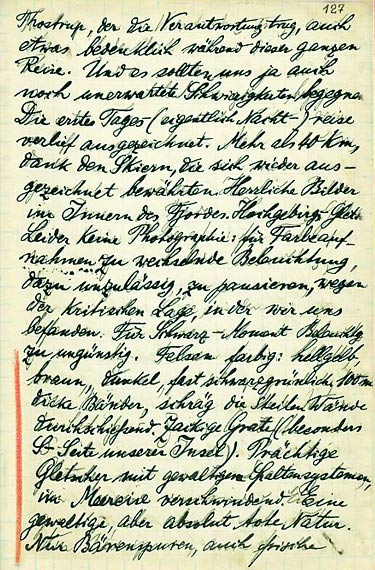 127
Thostrup, der die Verantwortung trug, auch
etwas bedenklich während dieser ganzen
Reise. Und es sollten uns ja auch
noch unerwartete Schwierigkeiten begegnen
Die erste Tages- (eigentlich Nacht-) reise
verlief ausgezeichnet. Mehr als 40 Km,
dank den Skiern, die sich wieder aus-
gezeichnet bewährten. Herrliche Bilder
im Innern des Fjordes. Hochgebirgs-
Leider keine Photographie: für Farbeauf-
nahmen zu wechselnde Beleuchtung,
dazu unzulässig, zu pausieren, wegen
der kritischen Lage, in der wir uns
befanden. Für Schwarz- Beleuchtg
zu ungünstig. Felsen farbig: hellgelb,
braun, dunkel, fast schwarzgrünlich, 100 m
dicke Bänder, schräg die steilen Wände
durchschiessend. Zackige Grate (besonders
S- Seite unserer Insel). Prächtige
Gletscher mit gewaltigen Spaltensystemen,
im Meereise verschwindend. Eine
gewaltige, aber absolut tote Natur.
Nur Bärenspuren, auch frische